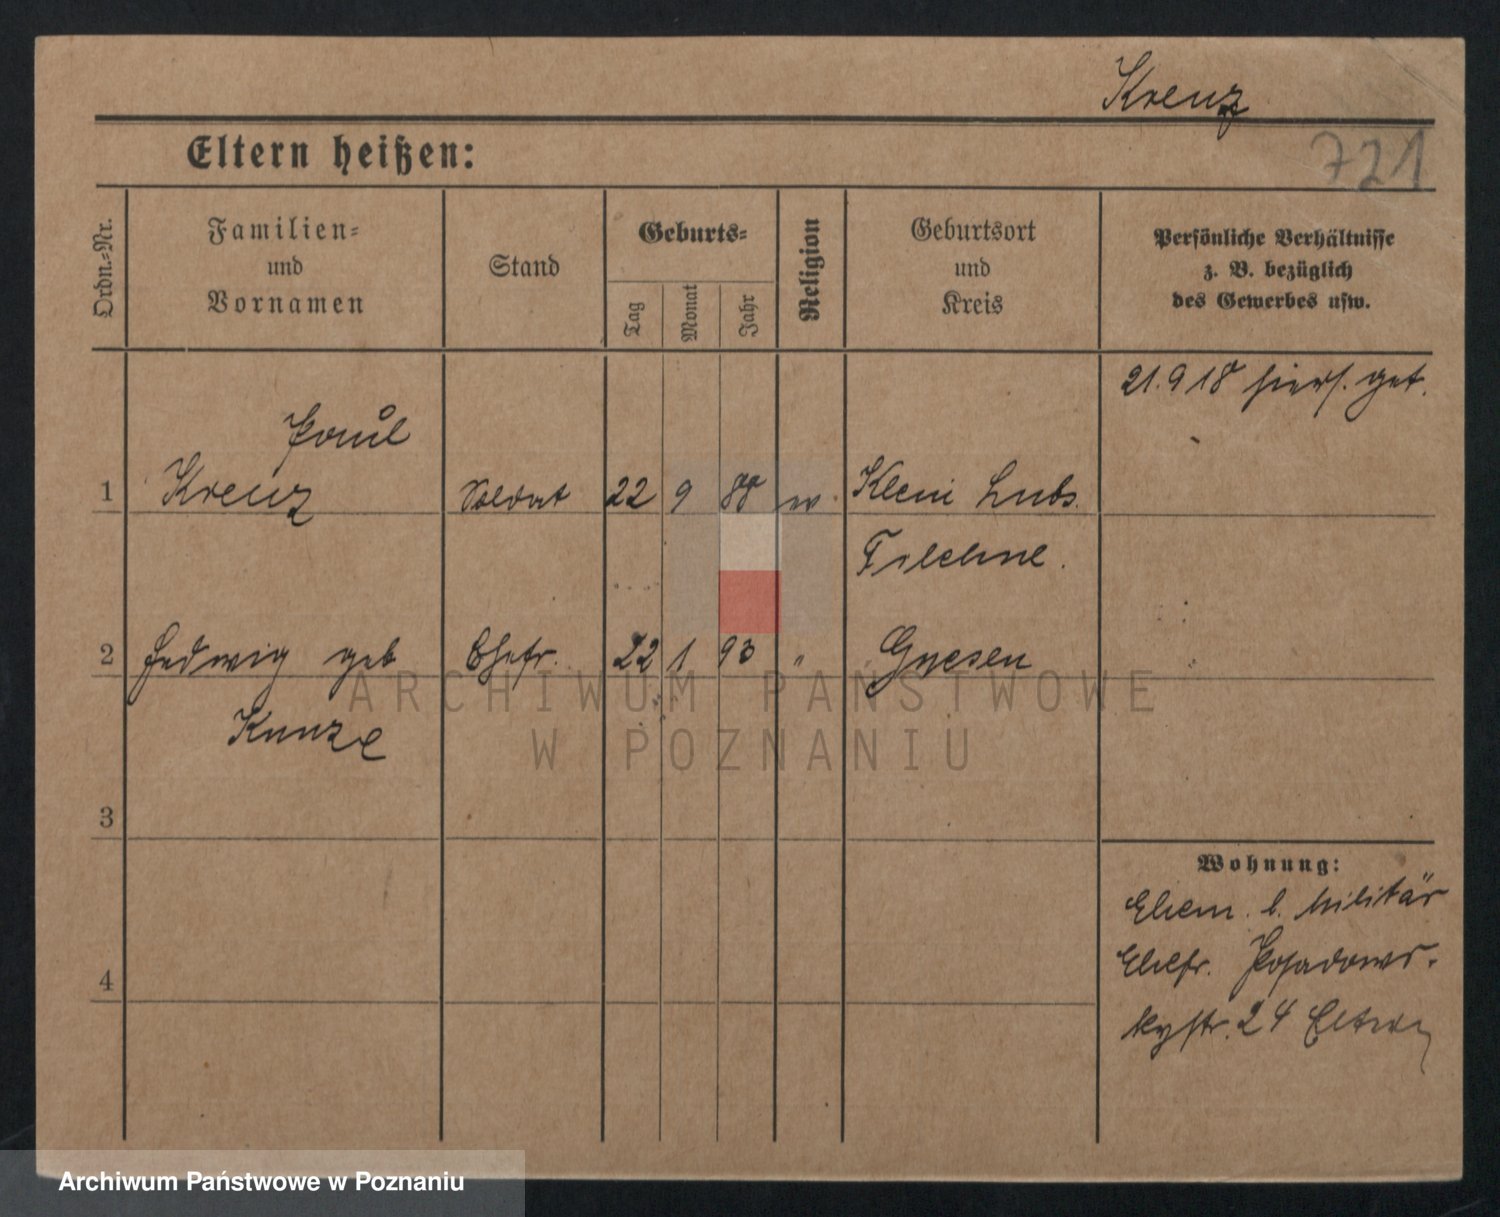 Krenz
721
Eltern heißen:
Ordn.-Nr.
Familien-
und
Vornamen
Stand
Geburts-
Tag
Monat
Jahr
Religion
Geburtsort
und
Kreis
Persönliche Verhältnisse
z. B. bezüglich
des Gewerbes usw.
21.9 18 hiers. get.
Paul
1 Krenz Soldat 22 9 88 ev Klein Lubs.
Filehne.
2 Hedwig geb Ehefr. 22 1 93 " Gnesen
Kunze
3
4
Wohnung:
Ehem. b. Militär
Ehefr. Posadows-
kystr. 24 Eltern
ARCHIWUM PAŃSTWOWE
W POZNANIU
Archiwum Państwowe w Poznaniu